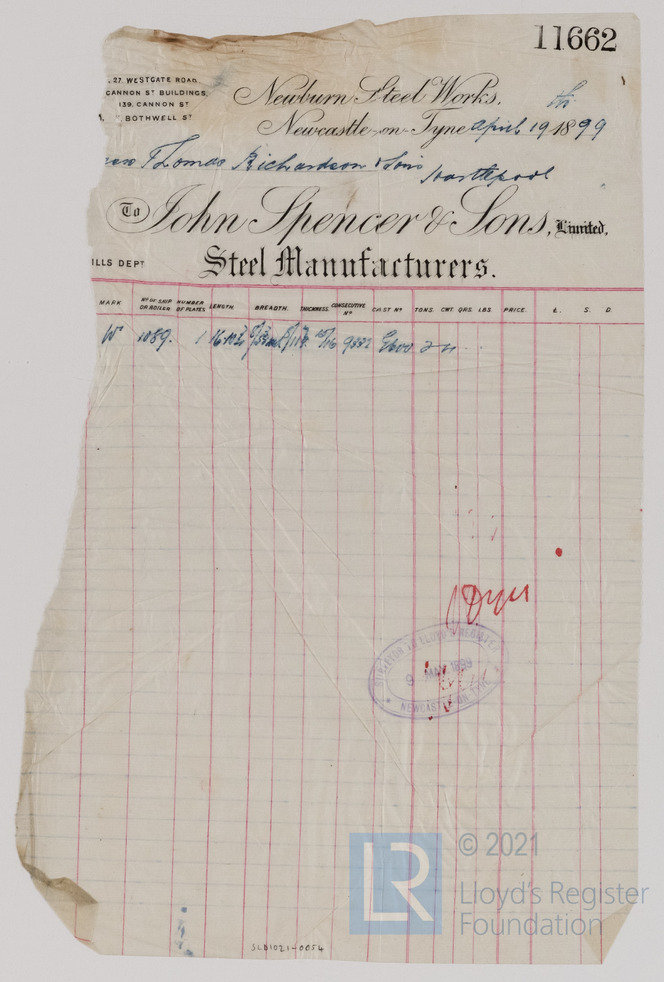 11662
27. WESTGATE ROAD
CANNON ST BUILDINGS,
139, CANNON ST
BOTHWELL ST
Newburn Steel Works,
Newcastle-on-Tyne April 19 1899
Thomas Richardson & Sons
Hartlepool
To John Spencer & Sons, Limited,
ILLS DEPT
Steel Manufacturers.
MARK Nº OF SHIP OR BOILER NUMBER OF PLATES LENGTH. BREADTH. THICKNESS. CONSECUTIVE Nº CAST Nº TONS. CWT. QRS. LBS. PRICE. £. S. D.
W 1089. 1 15/16
SURVEYOR TO LLOYD'S REGISTER
9 MAY 1899
NEWCASTLE-ON-TYNE
SLD1021-0054
LR
© 2021
Lloyd's Register
Foundation